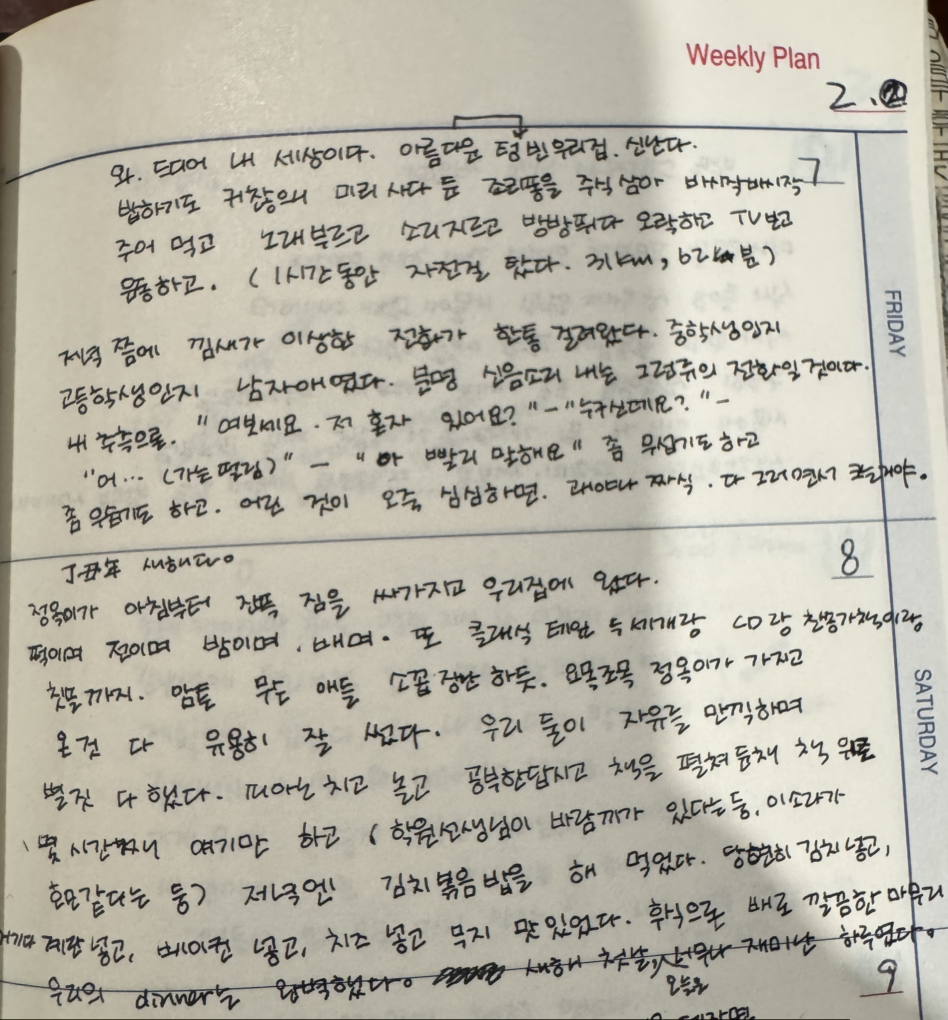 Weekly Plan
2.
7
와. 드디어 내 세상이다. 아름다운 텅 빈 우리집. 신난다.
밥하기도 귀찮으니 미리 사다 둔 죠리퐁을 주식 삼아 바시작바시작
주어 먹고 노래부르고 소리지르고 방방뛰다 오락하고 TV보고
운동하고. (1시간동안 자전걸 탔다. 31km, 62분)
FRIDAY
저녁 쯤에 낌새가 이상한 전화가 한통 걸려왔다. 중학생인지
고등학생인지 남자애였다. 분명 신음소리 내는 그런류의 전화일것이다.
내 추측으로. "여보세요. 저 혼자 있어요?" - "누구신데요?" -
"어... (가는 떨림)" - "아 빨리 말해요" 좀 무섭기도 하고
좀 우습기도 하고. 어린 것이 오죽 심심하면. 괜야나 짜식. 다 그러면서 크는거야.
8
丁丑年 새해다.
정옥이가 아침부터 잔뜩 짐을 싸가지고 우리집에 왔다.
떡이며 전이며 밤이며, 배며. 또 클래식 테잎 두세개랑 CD랑 찬몽가책이랑
칫솔까지. 암튼 무슨 애들 소꿉장난 하듯. 요목조목 정옥이가 가지고
온것 다 유용히 잘 썼다. 우리 둘이 자유를 만끽하며
SATURDAY
별짓 다 했다. 피아노 치고 놀고 공부한답시고 책을 펼쳐 둔채 책 위로
몇 시간째 얘기만 하고 (학원선생님이 바람끼가 있다는 둥, 이소라가
호모같다는 둥) 저녁엔 김치볶음밥을 해 먹었다. 당연히 김치 넣고,
거기다 계란 넣고, 베이컨 넣고, 치즈 넣고 무지 맛있었다. 후식으로 배로 깔끔한 마무리
우리의 dinner는 완벽했다. 새해 첫날, 너무나 재미난 하루였다.
9
오늘은